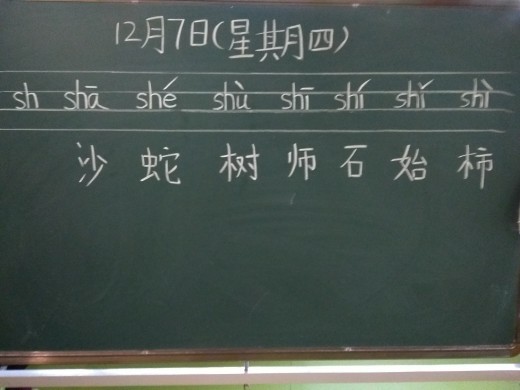 12月7日(星其月四)
sh shā shé shù shī shí shǐ shì
沙 蛇 树 师 石 始 柿